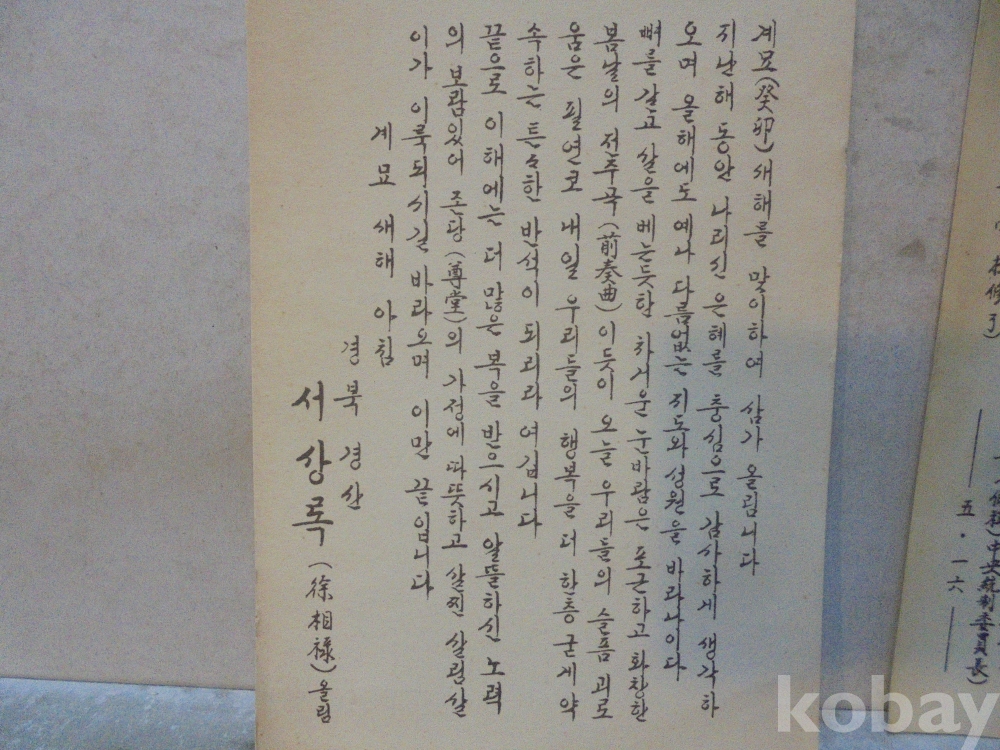 계묘(癸卯)새해를 맞이하여 삼가 올립니다
지난해 동안 나리신 은혜를 충심으로 감사하게 생각하
오며 올해에도 예나 다름없는 지도와 성원을 바라나이다
뼈를 갈고 살을 베는듯한 차거운 눈바람은 포근하고 화창한
봄날의 전주곡(前奏曲)이듯이 오늘 우리들의 슬픔 괴로
움은 필연코 내일 우리들의 행복을 더 한층 굳게 약
속하는 튼々한 반석이 되리라 여깁니다
끝으로 이해에는 더 많은 복을 받으시고 알뜰하신 노력
의 보람있어 존당(尊堂)의 가정에 따뜻하고 살찐 살림살
이가 이룩되시길 바라오며 이만 끝입니다
계묘 새해 아침
경북 경산
서상록 (徐相祿)올림
五·一六
(中央統制委員長)
kobay